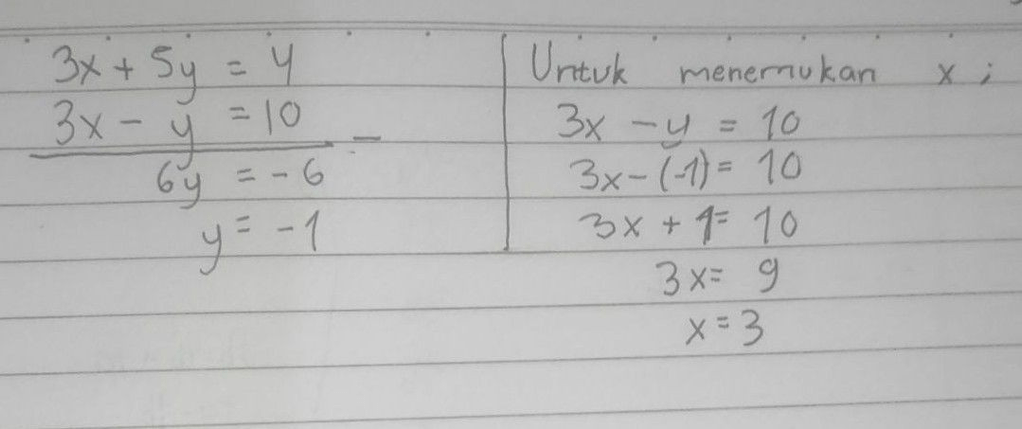 3x + 5y = 4
3x - y = 10
-
6y = -6
y = -1
Untuk menemukan x ;
3x - y = 10
3x - (-1) = 10
3x + 1 = 10
3x = 9
x = 3